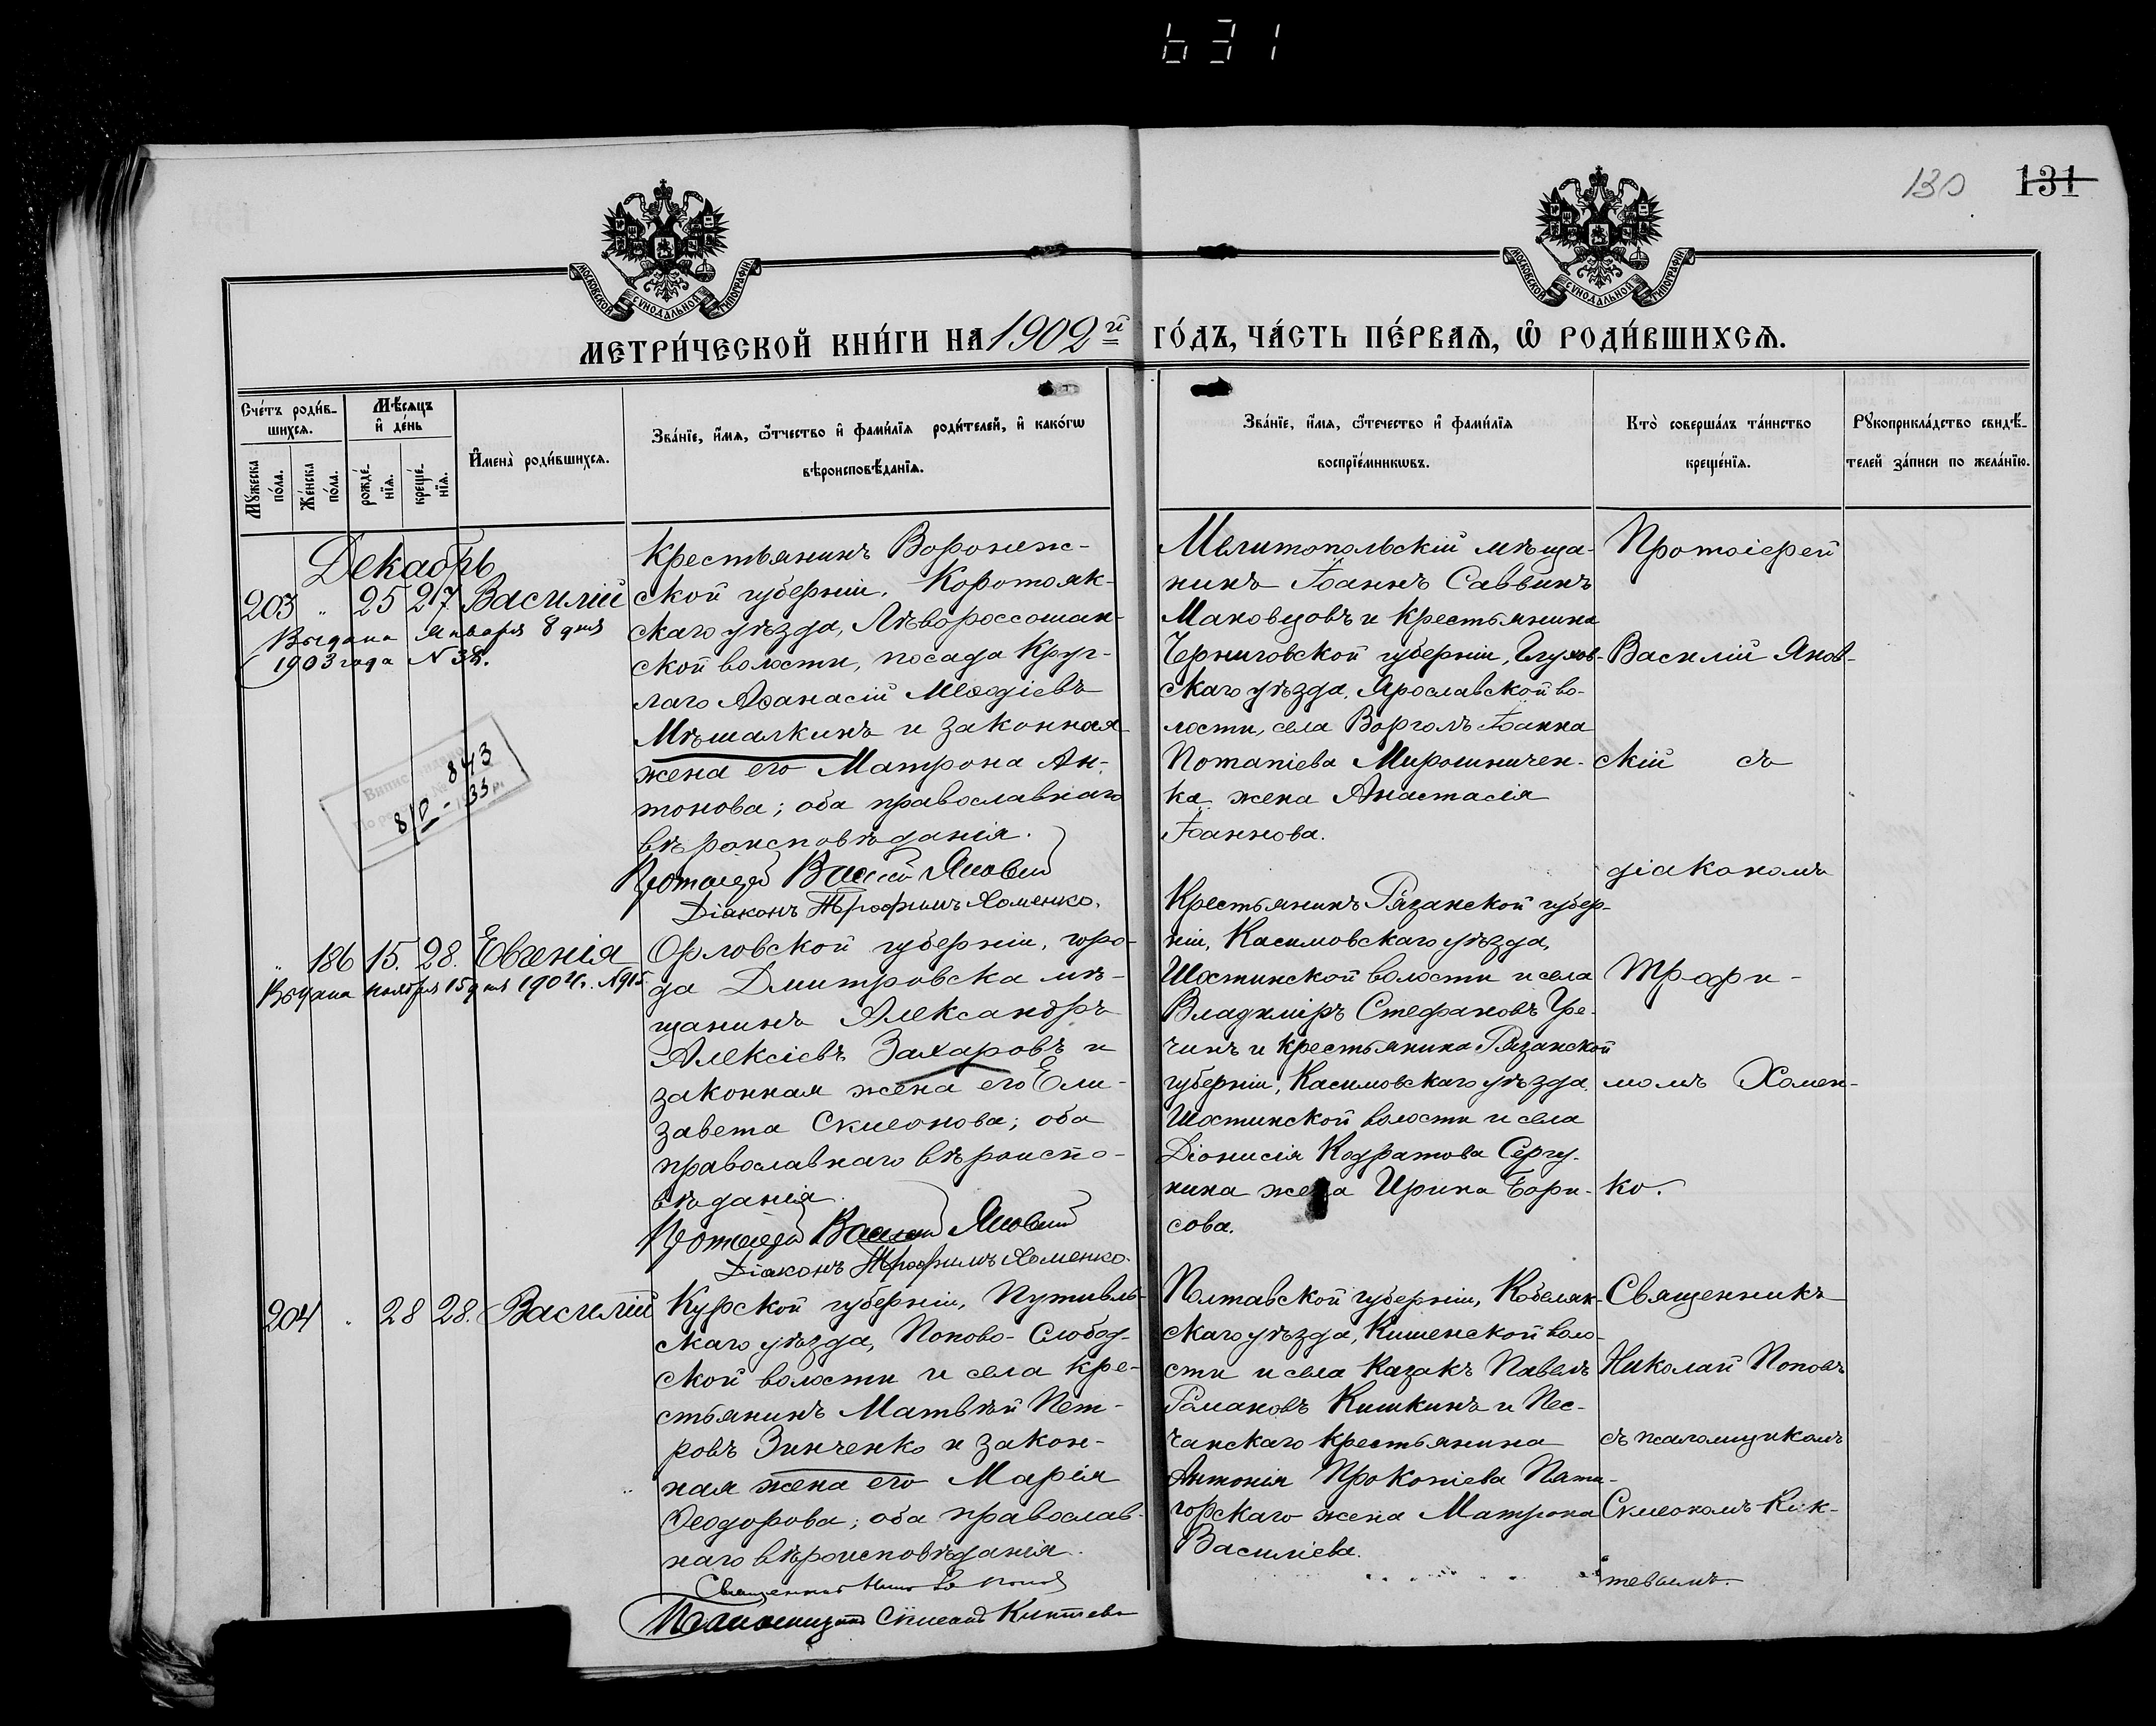 631
130 131
МОСКОВСКОЙ СѴНОДАЛЬНОЙ ТИПОГРАФІИ
МОСКОВСКОЙ СѴНОДАЛЬНОЙ ТИПОГРАФІИ
МЕТРИ́ЧЕСКОЙ КНИ́ГИ НА 1902й ГО́ДЪ, ЧА́СТЬ ПЕ́РВАѦ, Ѽ РОДИ́ВШИХСѦ.
Сче́тъ роди́в-
шихсѧ.
Мꙋ́жеска
по́ла.
Же́нска
по́ла.
Мѣ́сяцъ
и҆ де́нь
рожде́-
нїѧ.
креще́-
нїѧ.
И҆мена̀ роди́вшихсѧ.
Зва́нїе, и҆́мѧ, ѻ҆́тчество и҆ фами́лїѧ роди́телей, и҆ како́гѡ
вѣроисповѣ́данїѧ.
Зва́нїе, и҆́мѧ, ѻ҆́течество и҆ фами́лїѧ
воспрїе́мникѡвъ.
Кто̀ соверша́лъ та́инство
креще́нїѧ.
Рꙋкоприкла́дство свидѣ́-
телей за́писи по жела́нїю.
Декабрь
203 " 25 27 Василій
Выдана Января 8 дня
1903 года N 38.
843
8/V - 33
Крестьянинъ Воронеж-
ской губерніи, Коротояк-
скаго уѣзда, Лѣвороссошан-
ской волости, посада Круг-
лаго Аѳанасій Меѳодіевъ
Мѣшалкинъ и законная
жена его Матрона Ан-
тонова; оба православнаго
вѣроисповѣданія.
Протоіерей Василій Яновскій
Діаконъ Трофимъ Хоменко.
Мелитопольскій мѣща-
нинъ Іоаннъ Саввинъ
Маковцовъ и крестьянина
Черниговской губерніи, Глухов-
скаго уѣзда, Ярославской во-
лости, села Ворголъ Іоанна
Потапіева Мирошничен-
ка жена Анастасія
Іоаннова.
Протоіерей
Василій Янов-
скій съ
діакономъ
Трофи-
момъ Хомен-
ко.
" 186 15. 28. Евгенія
Выдана ноября 15 дня 1904г.
Орловской губерніи, горо-
да Дмитровска мѣ-
щанинъ Александръ
Алексіевъ Захаровъ и
законная жена его Ели-
завета Симеонова; оба
православнаго вѣроиспо-
вѣданія.
Протоіерей Василій Яновскій
Діаконъ Трофимъ Хоменко.
Крестьянинъ Рязанской губер-
ніи, Касимовскаго уѣзда,
Шостинской волости и села
Владиміръ Стефановъ Гре-
чинъ и крестьянина Рязанской
губерніи, Касимовскаго уѣзда,
Шостинской волости и села
Діонисія Кодратова Сергу-
нина жена Ирина Бори-
сова.
204 " 28 28. Василій
Курской губерніи, Путивль-
скаго уѣзда, Попово-Слобод-
ской волости и села кре-
стьянинъ Матвѣй Пет-
ровъ Зинченко и закон-
ная жена его Марія
Ѳеодорова; оба православ-
наго вѣроисповѣданія.
Священникъ Николай Поповъ
Псаломщикъ Симеонъ Киктевъ
Полтавской губерніи, Кобеляк-
скаго уѣзда, Кишенской воло-
сти и села казакъ Павелъ
Романовъ Кишкинъ и Пес-
чанскаго крестьянина
Антонія Прокопіева Пяти-
горскаго жена Матрона
Василіева.
Священникъ
Николай Поповъ
съ псаломщикомъ
Симеономъ Кик-
тевымъ.